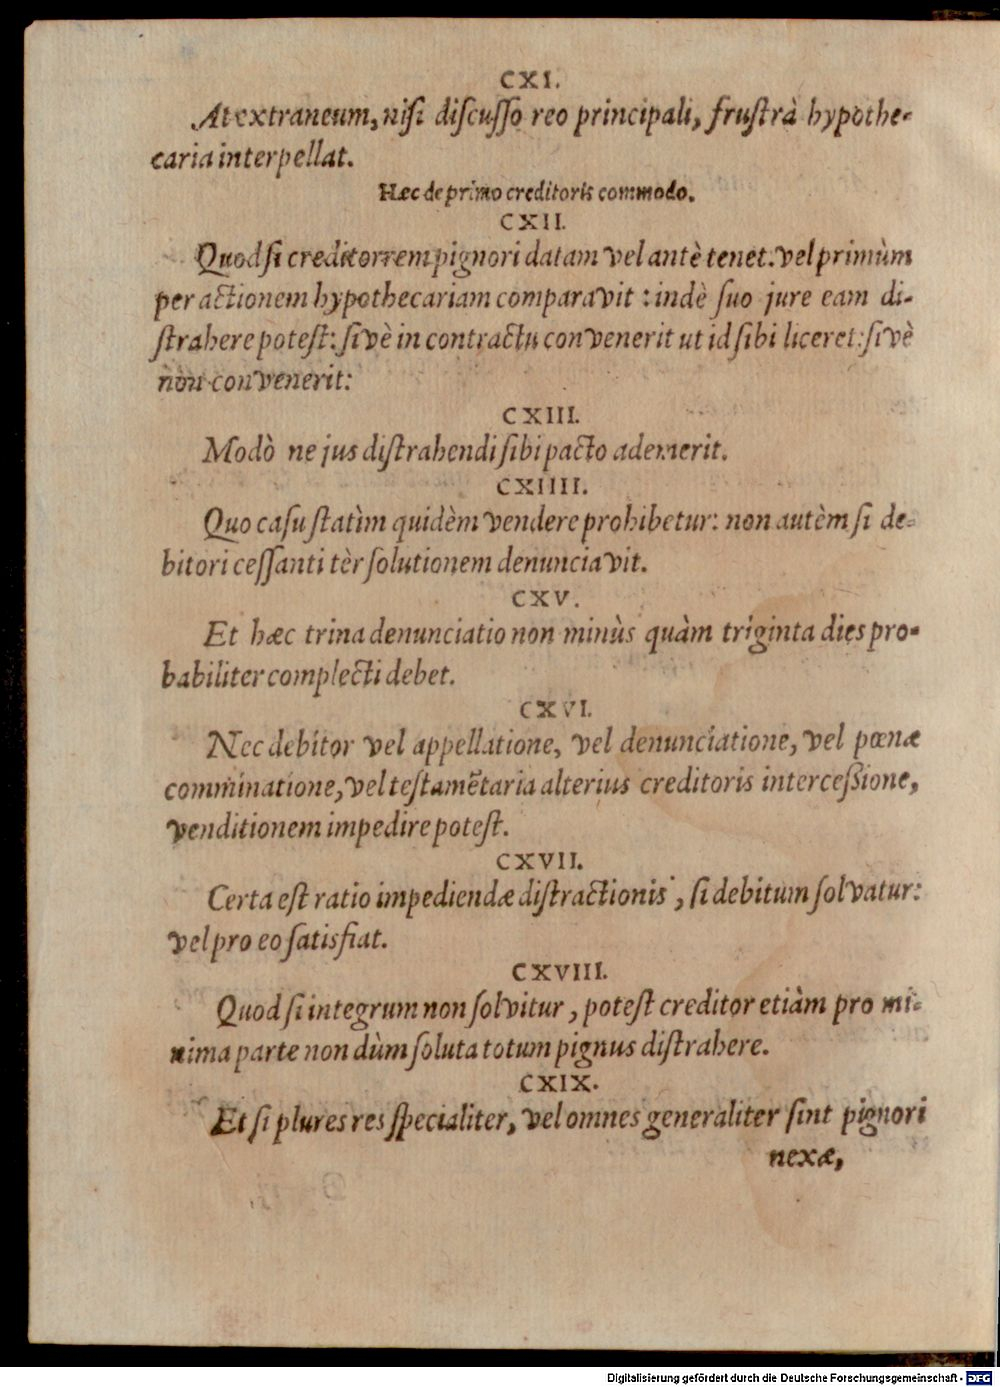 CXI.
At extraneum, nisi discusso reo principali, frustrà hypothe-
caria interpellat.
Hæc de primo creditoris commodo.
CXII.
Quod si creditor rem pignori datam vel antè tenet: vel primùm
per actionem hypothecariam comparavit : indè suo jure eam di-
strahere potest: sivè in contractu convenerit ut id sibi liceret: sivè
non convenerit:
CXIII.
Modò ne jus distrahendi sibi pacto ademerit.
CXIIII.
Quo casu statìm quidèm vendere prohibetur: non autèm si de-
bitori cessanti tèr solutionem denunciavit.
CXV.
Et hæc trina denunciatio non minùs quàm triginta dies pro-
babiliter complecti debet.
CXVI.
Nec debitor vel appellatione, vel denunciatione, vel pœnæ
comminatione, vel testamẽtaria alterius creditoris intercessione,
venditionem impedire potest.
CXVII.
Certa est ratio impediendæ distractionis, si debitum solvatur:
vel pro eo satisfiat.
CXVIII.
Quod si integrum non solvitur, potest creditor etiàm pro mi-
nima parte non dùm soluta totum pignus distrahere.
CXIX.
Et si plures res specialiter, vel omnes generaliter sint pignori
nexæ,
Digitalisierung gefördert durch die Deutsche Forschungsgemeinschaft - DFG